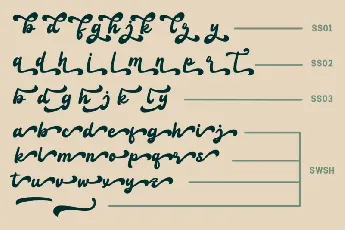 b d f g h j k l z y y SS01
a d h i l m n p r t SS02
b d g h j k l y SS03
a b c d e f g h i j
k l m n o p q r s
t u v w x y z
SWSH